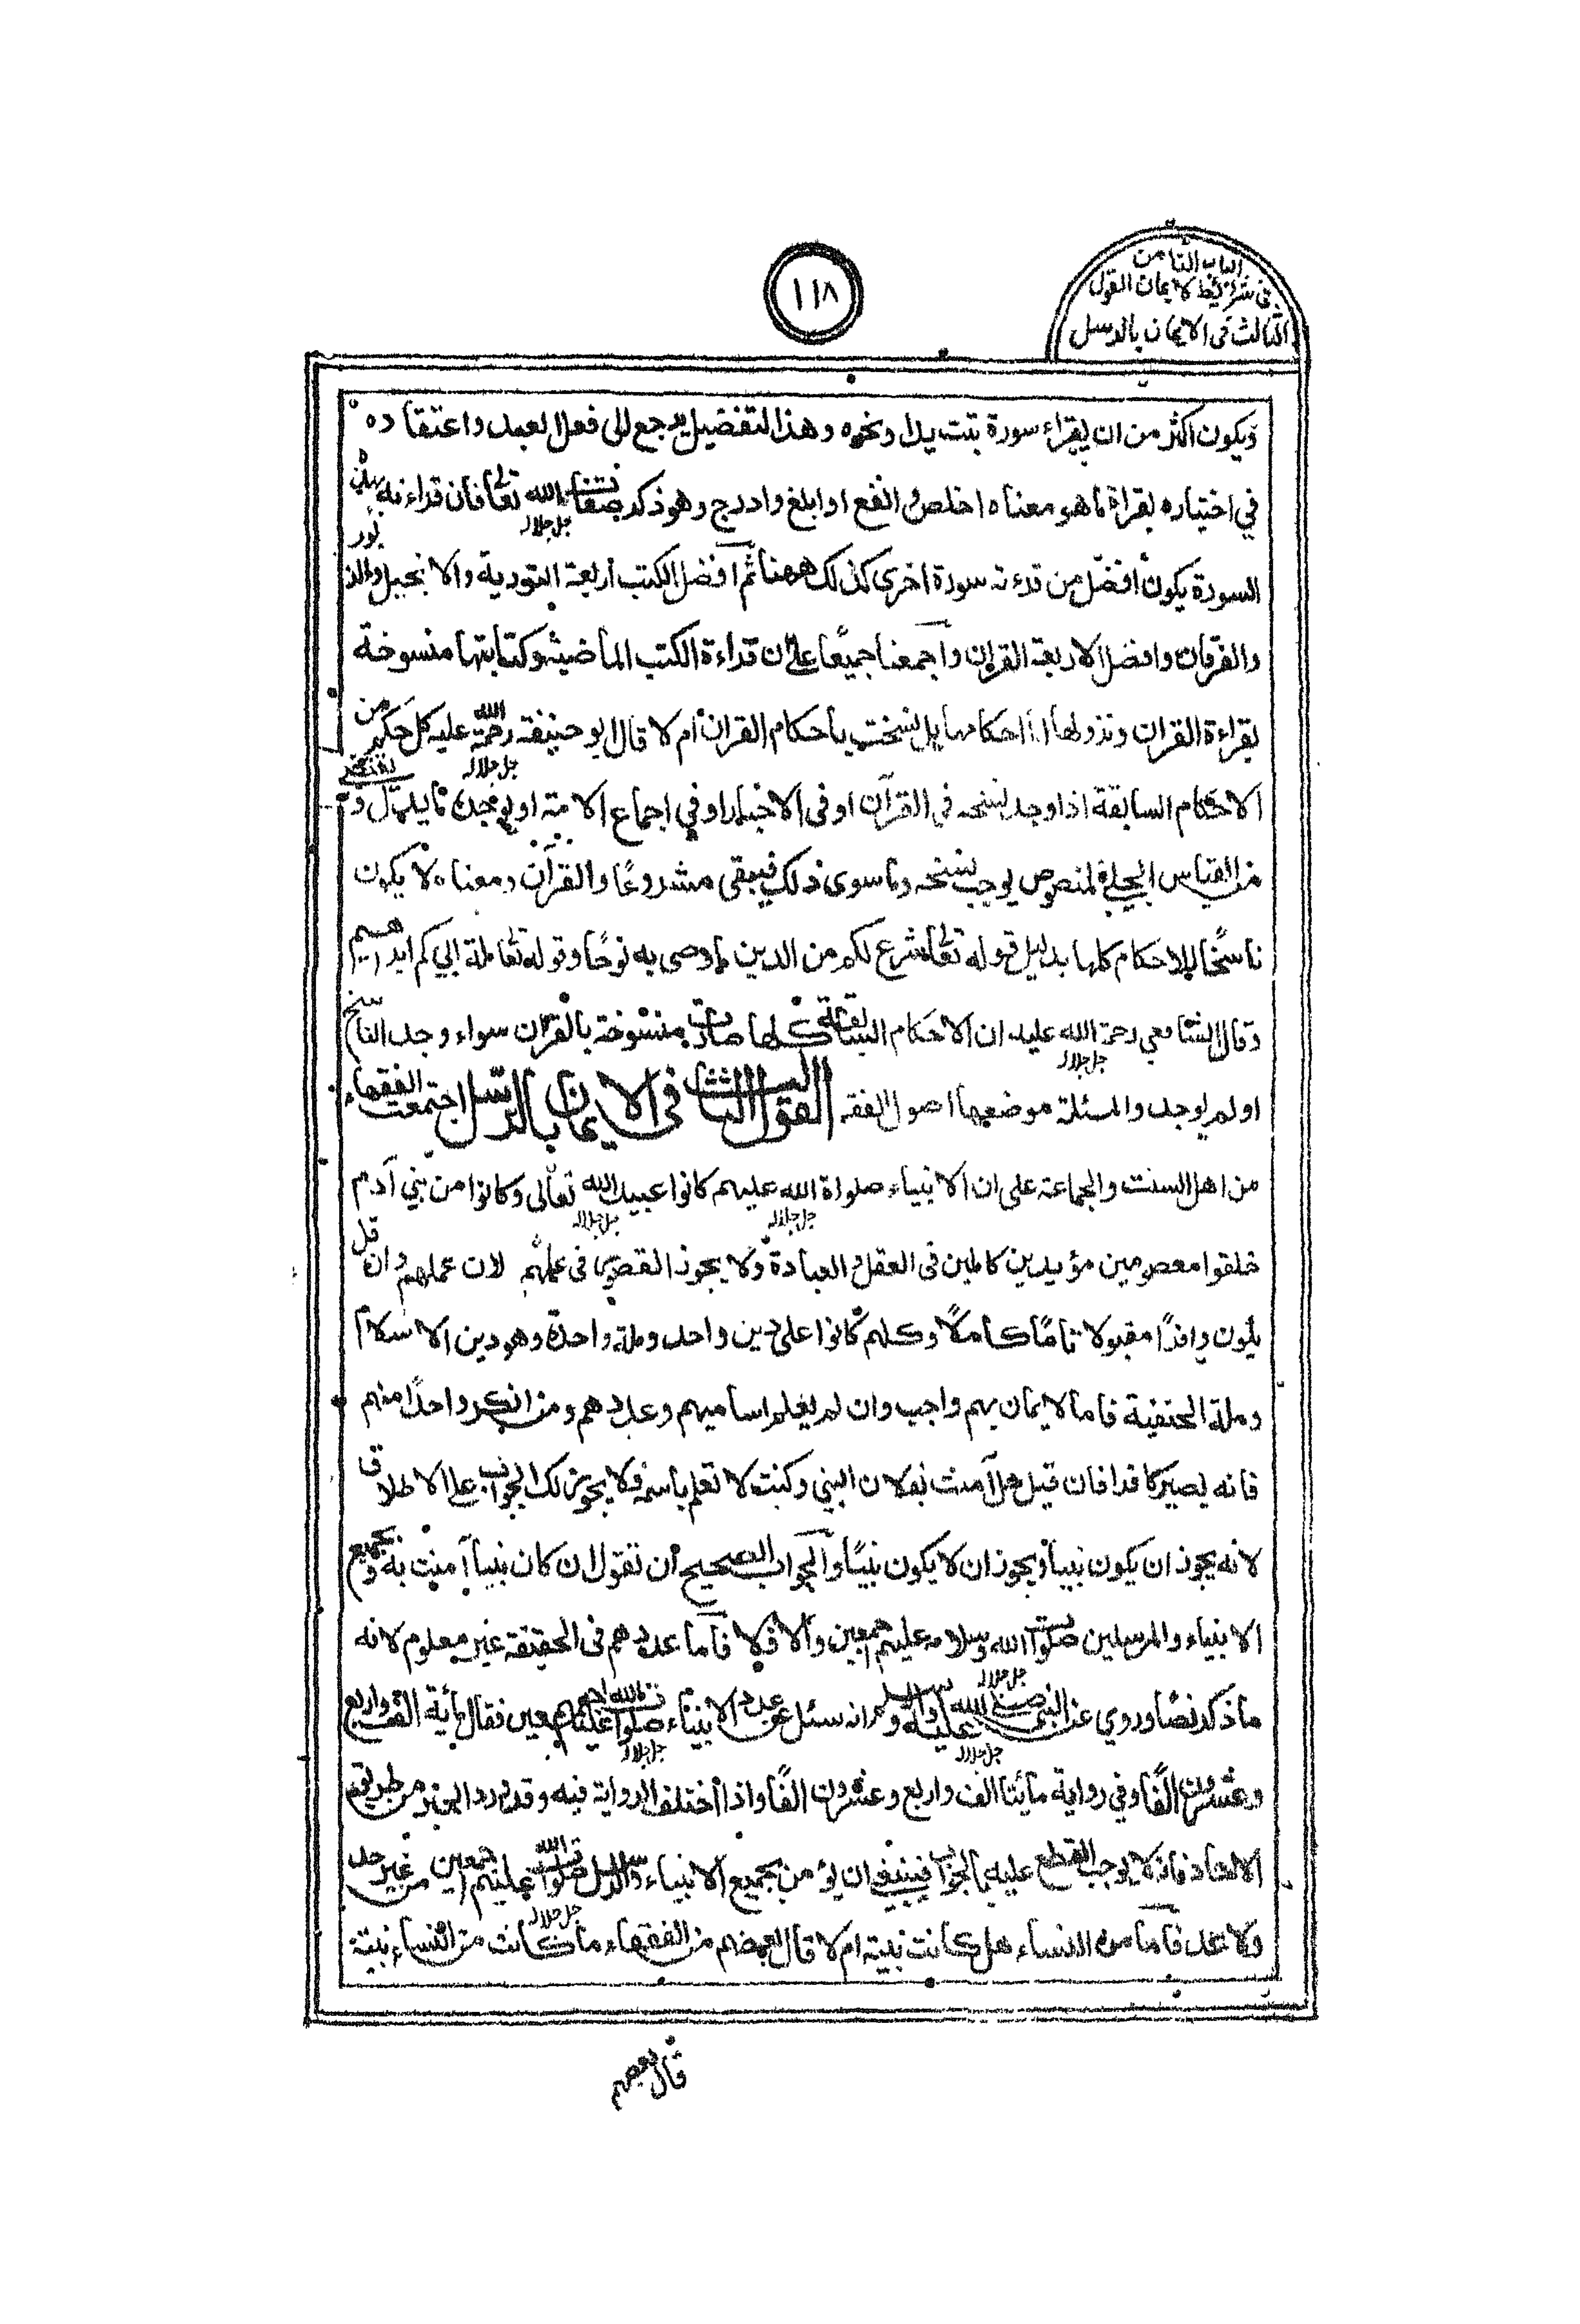 ١١٨
الباب الثامن
في شرائط الايمان القول
الثالث في الايمان بالرسل
ويكون اكثر من ان يقراء سورة تبت يدا ونحوه وهذا التفضيل يرجع الى فعل العبد واعتقاده
في اختياره لقراة ما هو معناه اخلص و انفع او ابلغ وادرج وهو ذكر صفات الله تعالى فان قراءته بهذه
جل جلاله
السورة يكون افضل من قراءته سورة اخرى كذلك ههنا ثم افضل الكتب اربعة التورية والانجيل والزبور
والفرقان وافضل الاربعة القران واجمعنا جميعًا على ان قراءة الكتب الماضية وكتابتها منسوخة
بقراءة القران ونزولها اما احكامها بل نسخت باحكام القران ام لا قال ابو حنيفة رحمة الله عليه كل حكم من
جل جلاله
الاحكام السابقة اذا وجد نسخه في القرآن او في الاخبار او في اجماع الامة او يوجد ما يدل
من القياس الجلي لمنصوص يوجب نسخه وما سوى ذلك فيبقى مشروعًا والقرآن ومعناه لا يكون
ناسخًا للاحكام كلها بدليل قوله تعالى شرع لكم من الدين ما وصى به نوحًا وقوله تعالى ملة ابيكم ابراهيم
وقال الشافعي رحمة الله عليه ان الاحكام السابقة كلها صارت منسوخة بالقران سواء وجد الناسخ
جل جلاله
او لم يوجد والمسئلة موضعها اصول الفقه القول الثالث في الايمان بالرسل اجتمعت الفقهاء
من اهل السنت والجماعة على ان الانبياء صلواة الله عليهم كانوا عبيد الله تعالى وكانوا من بني آدم
جل جلاله جل جلاله
خلقوا معصومين مؤيدين كاملين في العقل و العبادة ولا يجوز القصور في عملهم لان عملهم وان قل
يكون وافرًا مقبولا تامًا كاملًا وكلهم كانوا على دين واحد وملة واحدة وهو دين الاسلام
وملة الحنفية فاما الايمان بهم واجب وان لم يعلم اساميهم وعددهم ومن انكر واحدًا منهم
فانه يصير كافرا فان قيل هل آمنت بفلان النبي وكنت لا تعلم باسمه فلا يجوز لك الجواب على الاطلاق
لانه يجوز ان يكون نبيا ويجوز ان لا يكون نبيًا والجواب الصحيح ان تقول ان كان نبيا آمنت به وبجميع
الانبياء والمرسلين صلوات الله وسلامه عليهم اجمعين والا فلا فاما عددهم في الحقيقة غير معلوم لانه
جل جلاله
ما ذكر نصًا وروي عن النبي صلى الله عليه وآله وسلم انه سئل عن عدد الانبياء صلوات الله عليهم اجمعين فقال مأية الف واربع
جل جلاله جل جلاله
وعشرون الفًا وفي رواية مأيتا الف واربع وعشرون الفًا واذا اختلف الرواية فيه وقد ورد الخبر من طريق
الاحاد فانه لا يوجب القطع عليه بالجواب فينبغي ان يؤمن بجميع الانبياء والرسل صلوات الله عليهم اجمعين من غير حد
جل جلاله
ولا عدد فاما من النساء هل كانت نبية ام لا قال بعضهم من الفقهاء ما كانت من النساء نبية
قال بعضهم